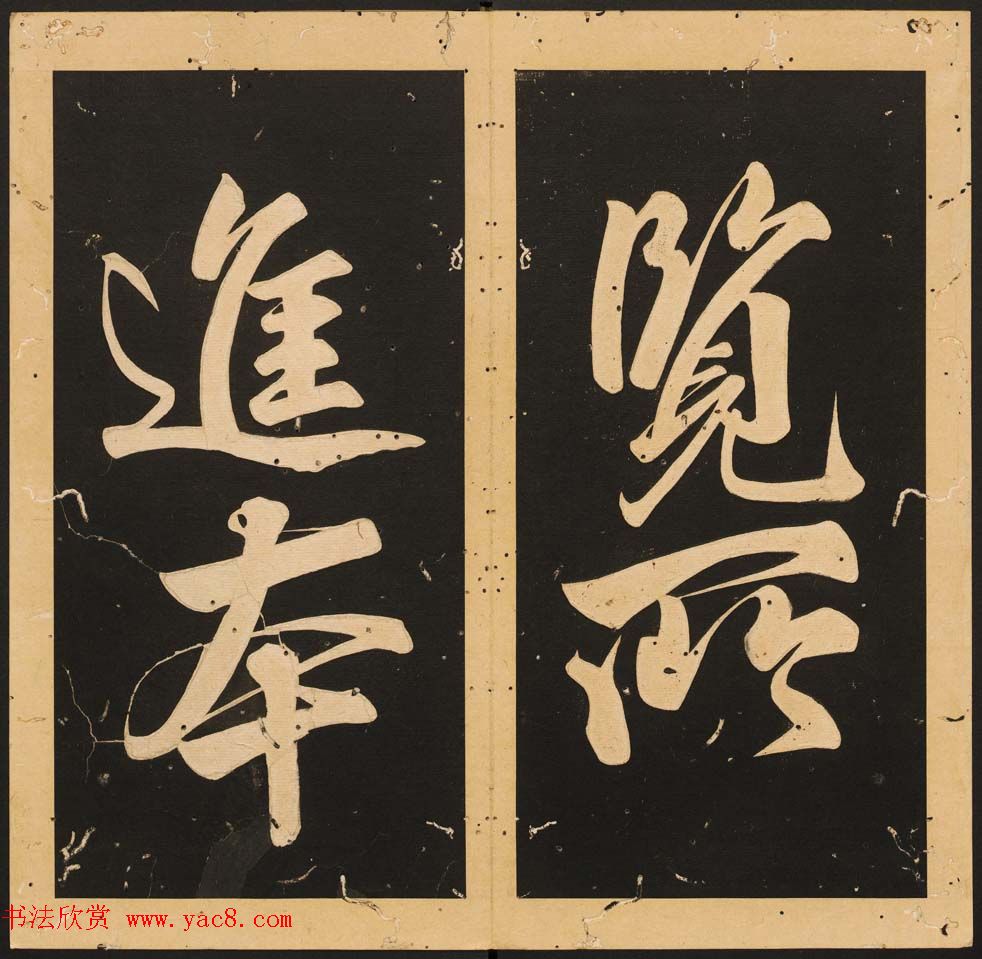 覽所
進本
书法欣赏 www.yac8.com